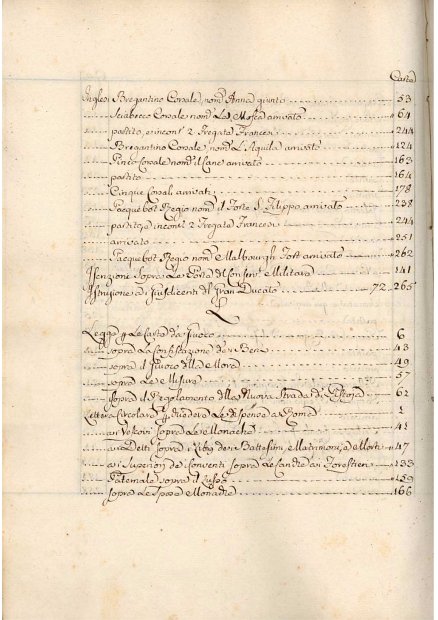 Carte
Inglesi Bregantino Corsale, nom.° Anna giunto 53
Sciabecco Corsale nom.° La Mosca arrivato 64
partito, e incont.° 2 Fregate Francesi 244
Bregantino Corsale nom.° L'Aquila arrivato 124
Pinco Corsale nom.° il Cane arrivato 163
partito 164
Cinque Corsali arrivati 178
Pacquebot Regio nom.° il Forte S. Filippo arrivato 238
partito, e incont.° 2 Fregate Francesi 244
arrivato 251
Pacquebot Regio nom.° Malbourgh Fort arrivato 262
Esenzioni Sopra Le Militare 141
Istruzione a i Giusdicenti del Gran Ducato 72, 265
L
Legge p Le Carte da Giuoco 6
sopra La Confiscazione de i Beni 43
sopra il Giuoco della Mora 49
sopra Le Misure 57
sopra il Regolamento della Nuova Strada di Pistoja 62
Lettera Circolare p Le Dispense a Roma 1
a i Vescovi sopra Le Monache 41
a i Detti sopra i Libri de i Battesimi, Matrimonj, e Morti 47
a i Superiori de i Conventi sopra Le de i Forestieri 133
sopra il Lusso 159
sopra Le Spese Monache 166